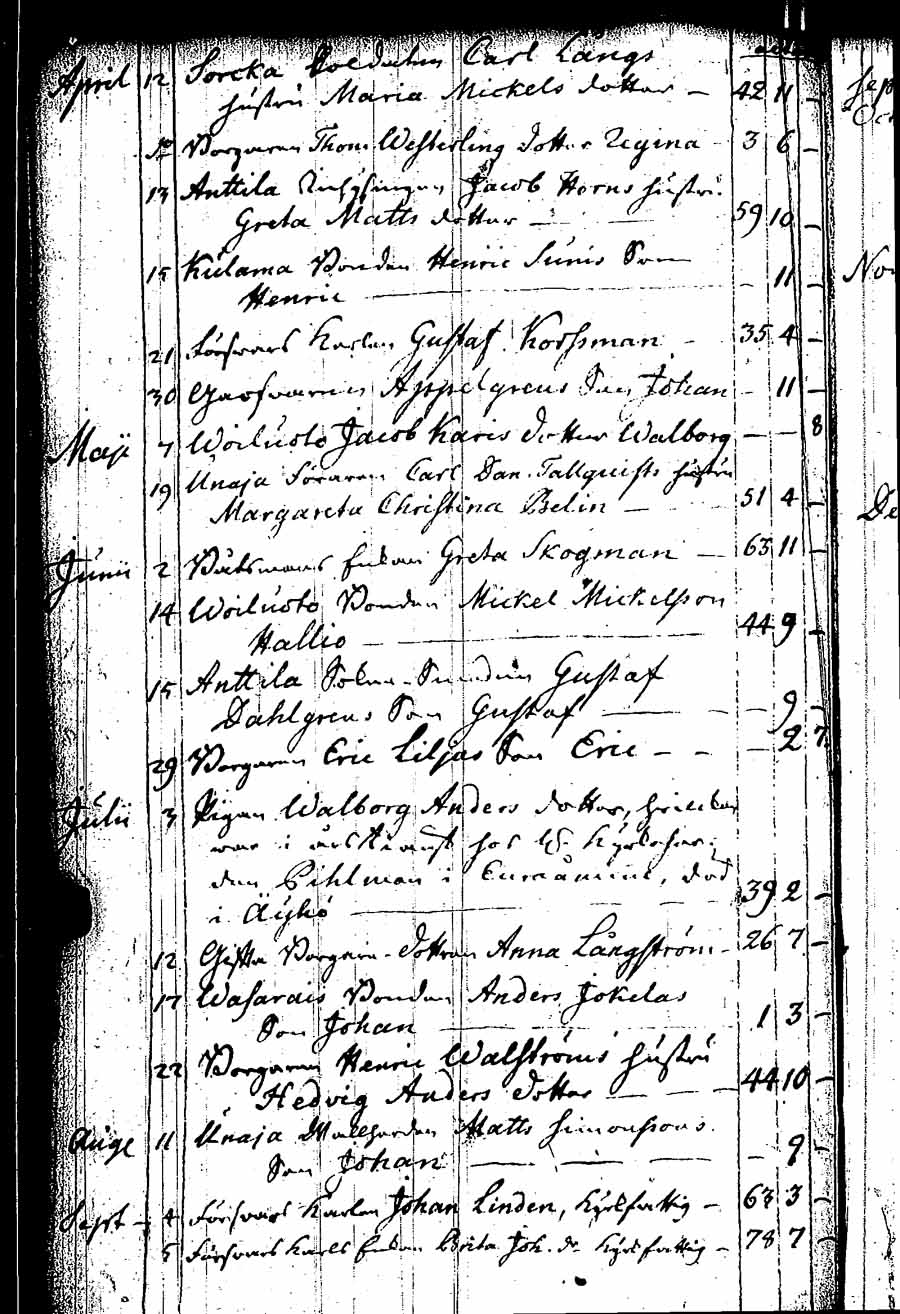 April 12 Sorcka Soldaten Carl Långs
hustru Maria Mickels dotter — 42 11 —
Borgaren Thom Westerling dotter Regina 3 6 —
13 Anttila Jacob Horns hustru
Greta Matts dotter — 59 10 —
15 Kulama Bonden Henric Sunis Son
Henric — 11 —
21 Försvars Karlen Gustaf Korssman 35 4 —
30 Garfvaren Appelgrens Son Johan — 11 —
Maji 7 Woiluoto Jacob Karis dotter Walborg — — 8
19 Unaja Föraren Carl Dan. Tallquists hustru
Margareta Christina Belin — 51 4 —
Junii 2 Båtsmans Enkan Greta Skogman — 63 11 —
14 Woiluoto Bonden Mickel Mickelsson
Hallio — 44 9 —
15 Anttila Gustaf
Dahlgrens Son Gustaf — 9 —
29 Borgaren Eric Liljas Son Eric — — — 2 7
Julii 3 Pigan Walborg Anders dotter, hvilken
war i årstienst hos
Pihlman i Euraåminne, död
i — 39 2 —
12 Gifta Borgare-dottren Anna Långström — 26 7 —
17 Wasarais Bonden Anders Jokelas
Son Johan — 1 3 —
22 Borgaren Henric Walströms hustru
Hedvig Anders dotter — 44 10 —
Auge 11 Unaja Matts Simonssons
Son Johan — — — 9 —
Sept 4 Försvars Karlen Johan Linden, kyrkfattig — 63 3 —
5 Försvars Karls Enkan Brita Joh. dr kyrkfattig — 78 7 —
Sep
Oct
Nov
De